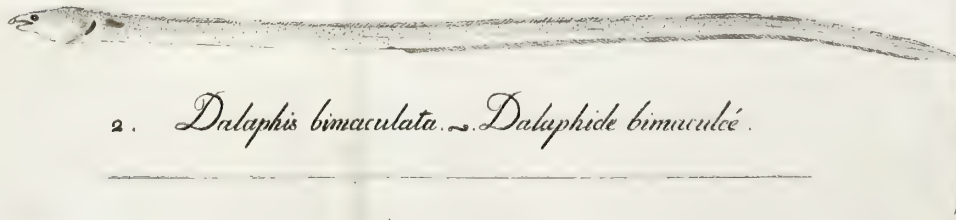 2. Dalaphis bimaculata. ~ Dalaphide bimaculeé.